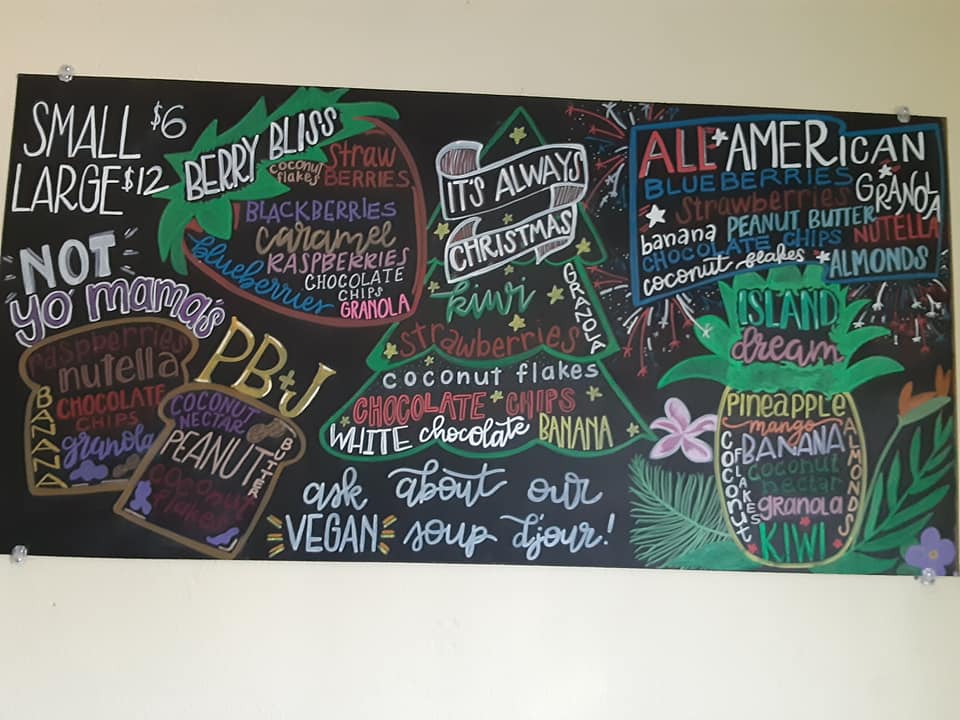 SMALL $6
LARGE $12
BERRY BLISS
coconut flakes
STRAW BERRIES
BLACKBERRIES
caramel
RASPBERRIES
blueberries
CHOCOLATE CHIPS
GRANOLA
IT'S ALWAYS
CHRISTMAS
kiwi
GRANOLA
strawberries
coconut flakes
CHOCOLATE CHIPS
WHITE chocolate BANANA
ALL AMERICAN
BLUEBERRIES
GRANOLA
strawberries
banana PEANUT BUTTER
CHOCOLATE CHIPS NUTELLA
coconut flakes ALMONDS
NOT
yo mama's
PB+J
raspberries
nutella
BANANA
CHOCOLATE
CHIPS
granola
COCONUT
NECTAR
PEANUT
BUTTER
coconut
flakes
ask about our
VEGAN soup d'jour!
ISLAND
dream
PINEAPPLE
mango
COCONUT FLAKES
BANANA
ALMONDS
coconut
nectar
granola
KIWI